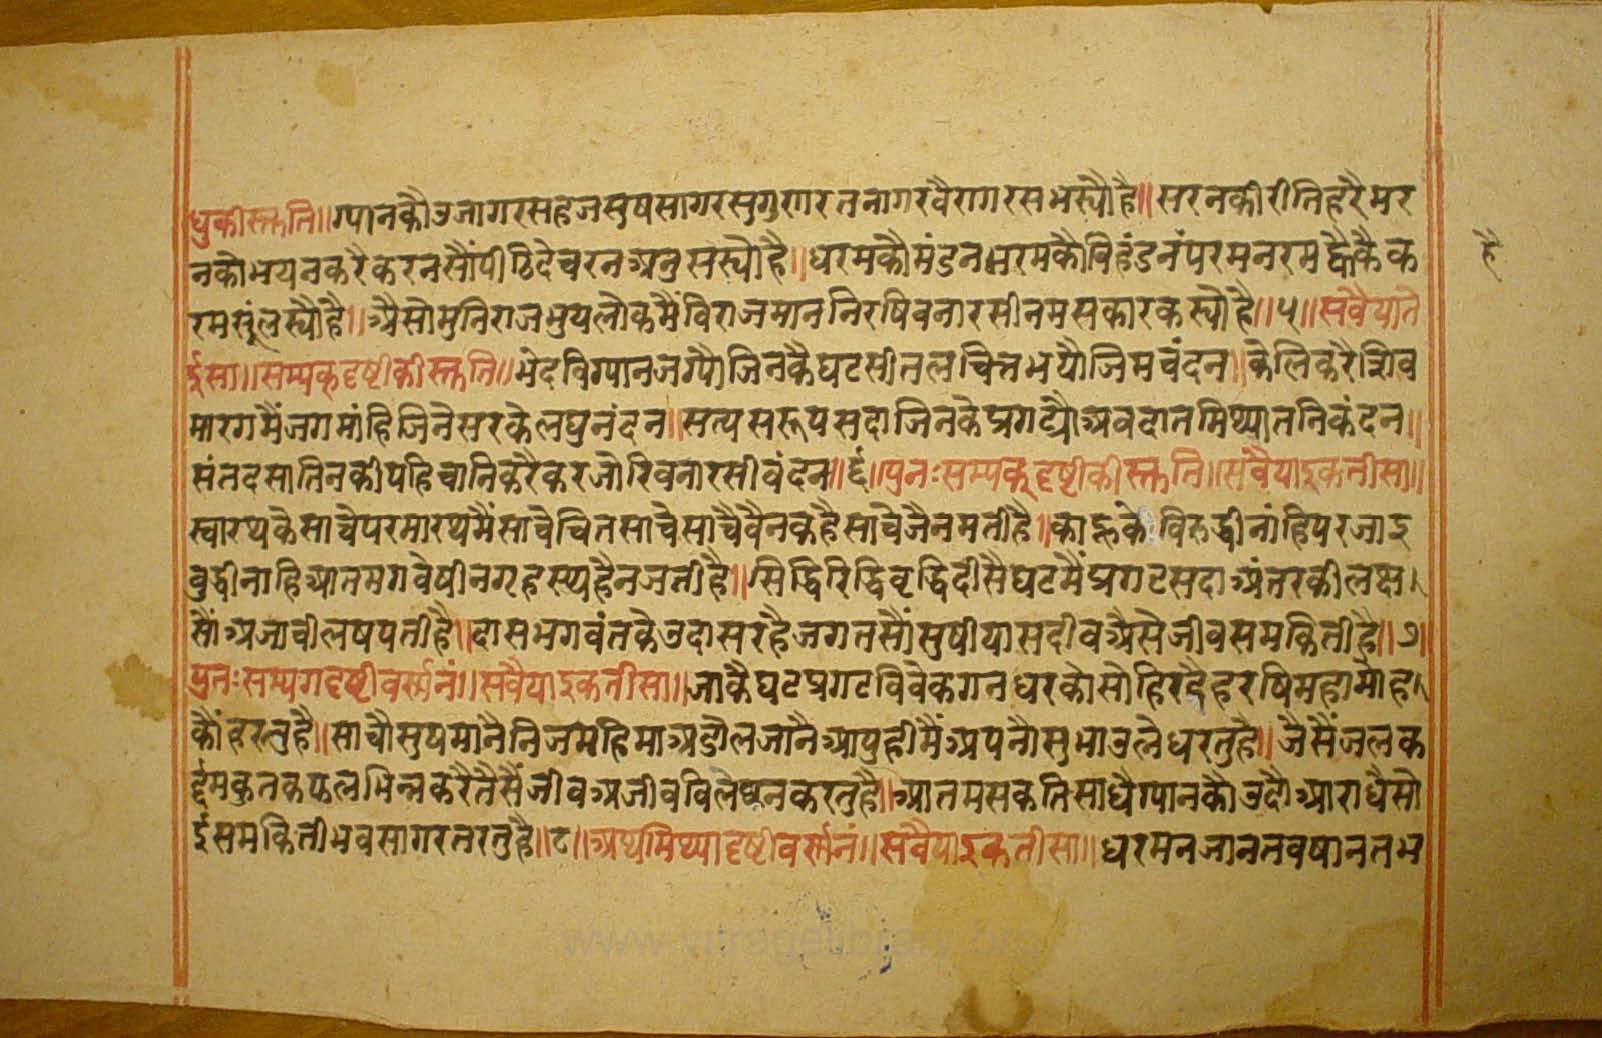 धुकीस्तुति॥ग्यानकौउजागरसहजसुषसागरसुगुरारतनागरवैरागरसभस्यौहै॥सरनकीरीतिहरैमर
नकोभयनकरैकरनसौंपीठिदेचरनअनुसस्यौहै॥धरमकौमंडनभरमकौविहंडनंपरमनरमव्हैकैक
रमसुंलस्यौहै॥अैसोमुनिराजभुयलोकमैंविराजमाननिरषिवनारसीनमसकारकस्यौहै॥५॥सवैयाते
ईसा॥सम्यक्दृष्टीकीस्तुति॥भेदविग्यानजग्यौजिनकैघटसीतलचित्तभयौजिमचंदन॥केलिकरैशिव
मारगमैंजगमांहिजिनेसरकेलघुनंदन॥सत्यसरूपसदाजिनकेप्रगट्यौअवदातमिथ्यातनिकंदन॥
संतदसातिनकीपहिचानिकरैकरजोरिवनारसीवंदन॥६॥पुनःसम्यक्दृष्टीकीस्तुति॥सवैयाइकतीसा॥
स्वारथकेसाचेपरमारथमैंसाचेचितसाचेसाचैवैनकहैसाचेजैनमतीहै॥काहूकेविरुद्वीनांहिपरजाइ
वुद्वीनाहिआतमगवेषीनगृहस्थहैनजतीहै॥सिद्विरिद्विवृद्विदीसैघटमैंप्रगटसदाअंतरकीलक्ष
सौंअजाचीलषपतीहै॥दासभगवंतकेउदासरहैजगतसौंसुषीयासदीवअैसेजीवसमकितीहै॥७॥
पुनःसम्यगदृष्टीवर्स्ननं॥सवैयाइकतीसा॥जाकैघटप्रगटविवेकगनधरकोसोहिरदैहरषिमहामोह
कौंहरतुहै॥साचौसुषमानैनिजमहिमाअडौलजानैआपुहीमैंअपनौसुभाउलेधरतुहै॥जैसैंजलक
र्दमकुतकफलभिन्नकरैतैसैंजीवअजीवविलेछनकरतुहै॥आतमसकतिसाधैग्यानकौउदौआराधैसो
ईसमकितीभवसागरतरतुहै॥८॥अथमिथ्यादृष्टीवर्स्ननं॥सवैयाइकतीसा॥धरमनजानतवषानतभ
है
www.vitragelibrary.org